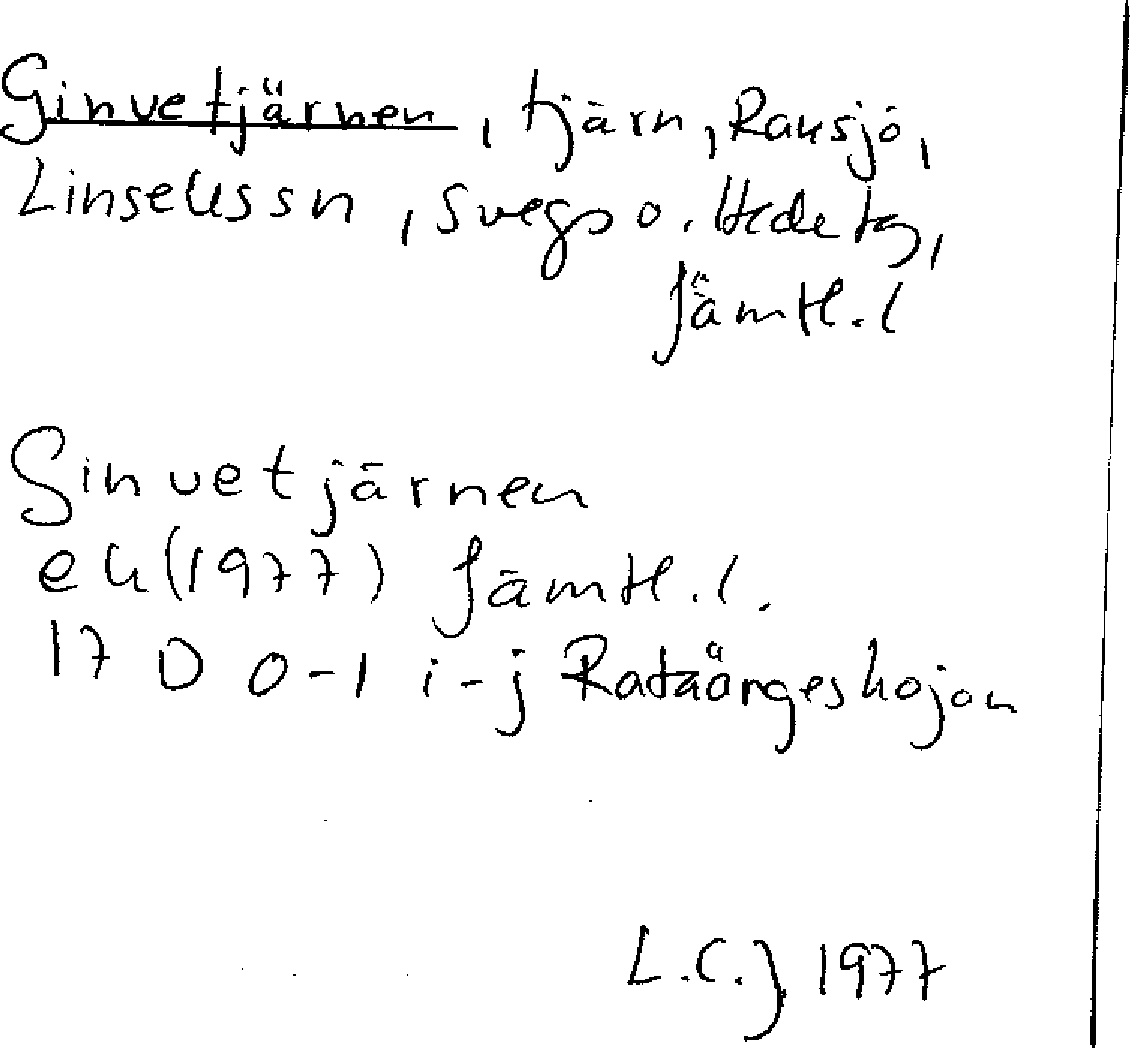 Ginvetjärnen, tjärn, Ransjö,
Linsells sn, Svegs o. Hede tg,
Jämtl. l
Ginvetjärnen
ek (1977) Jämtl. l.
17 D 0-1 i-j Rataängeskojan
L.C.J 1977